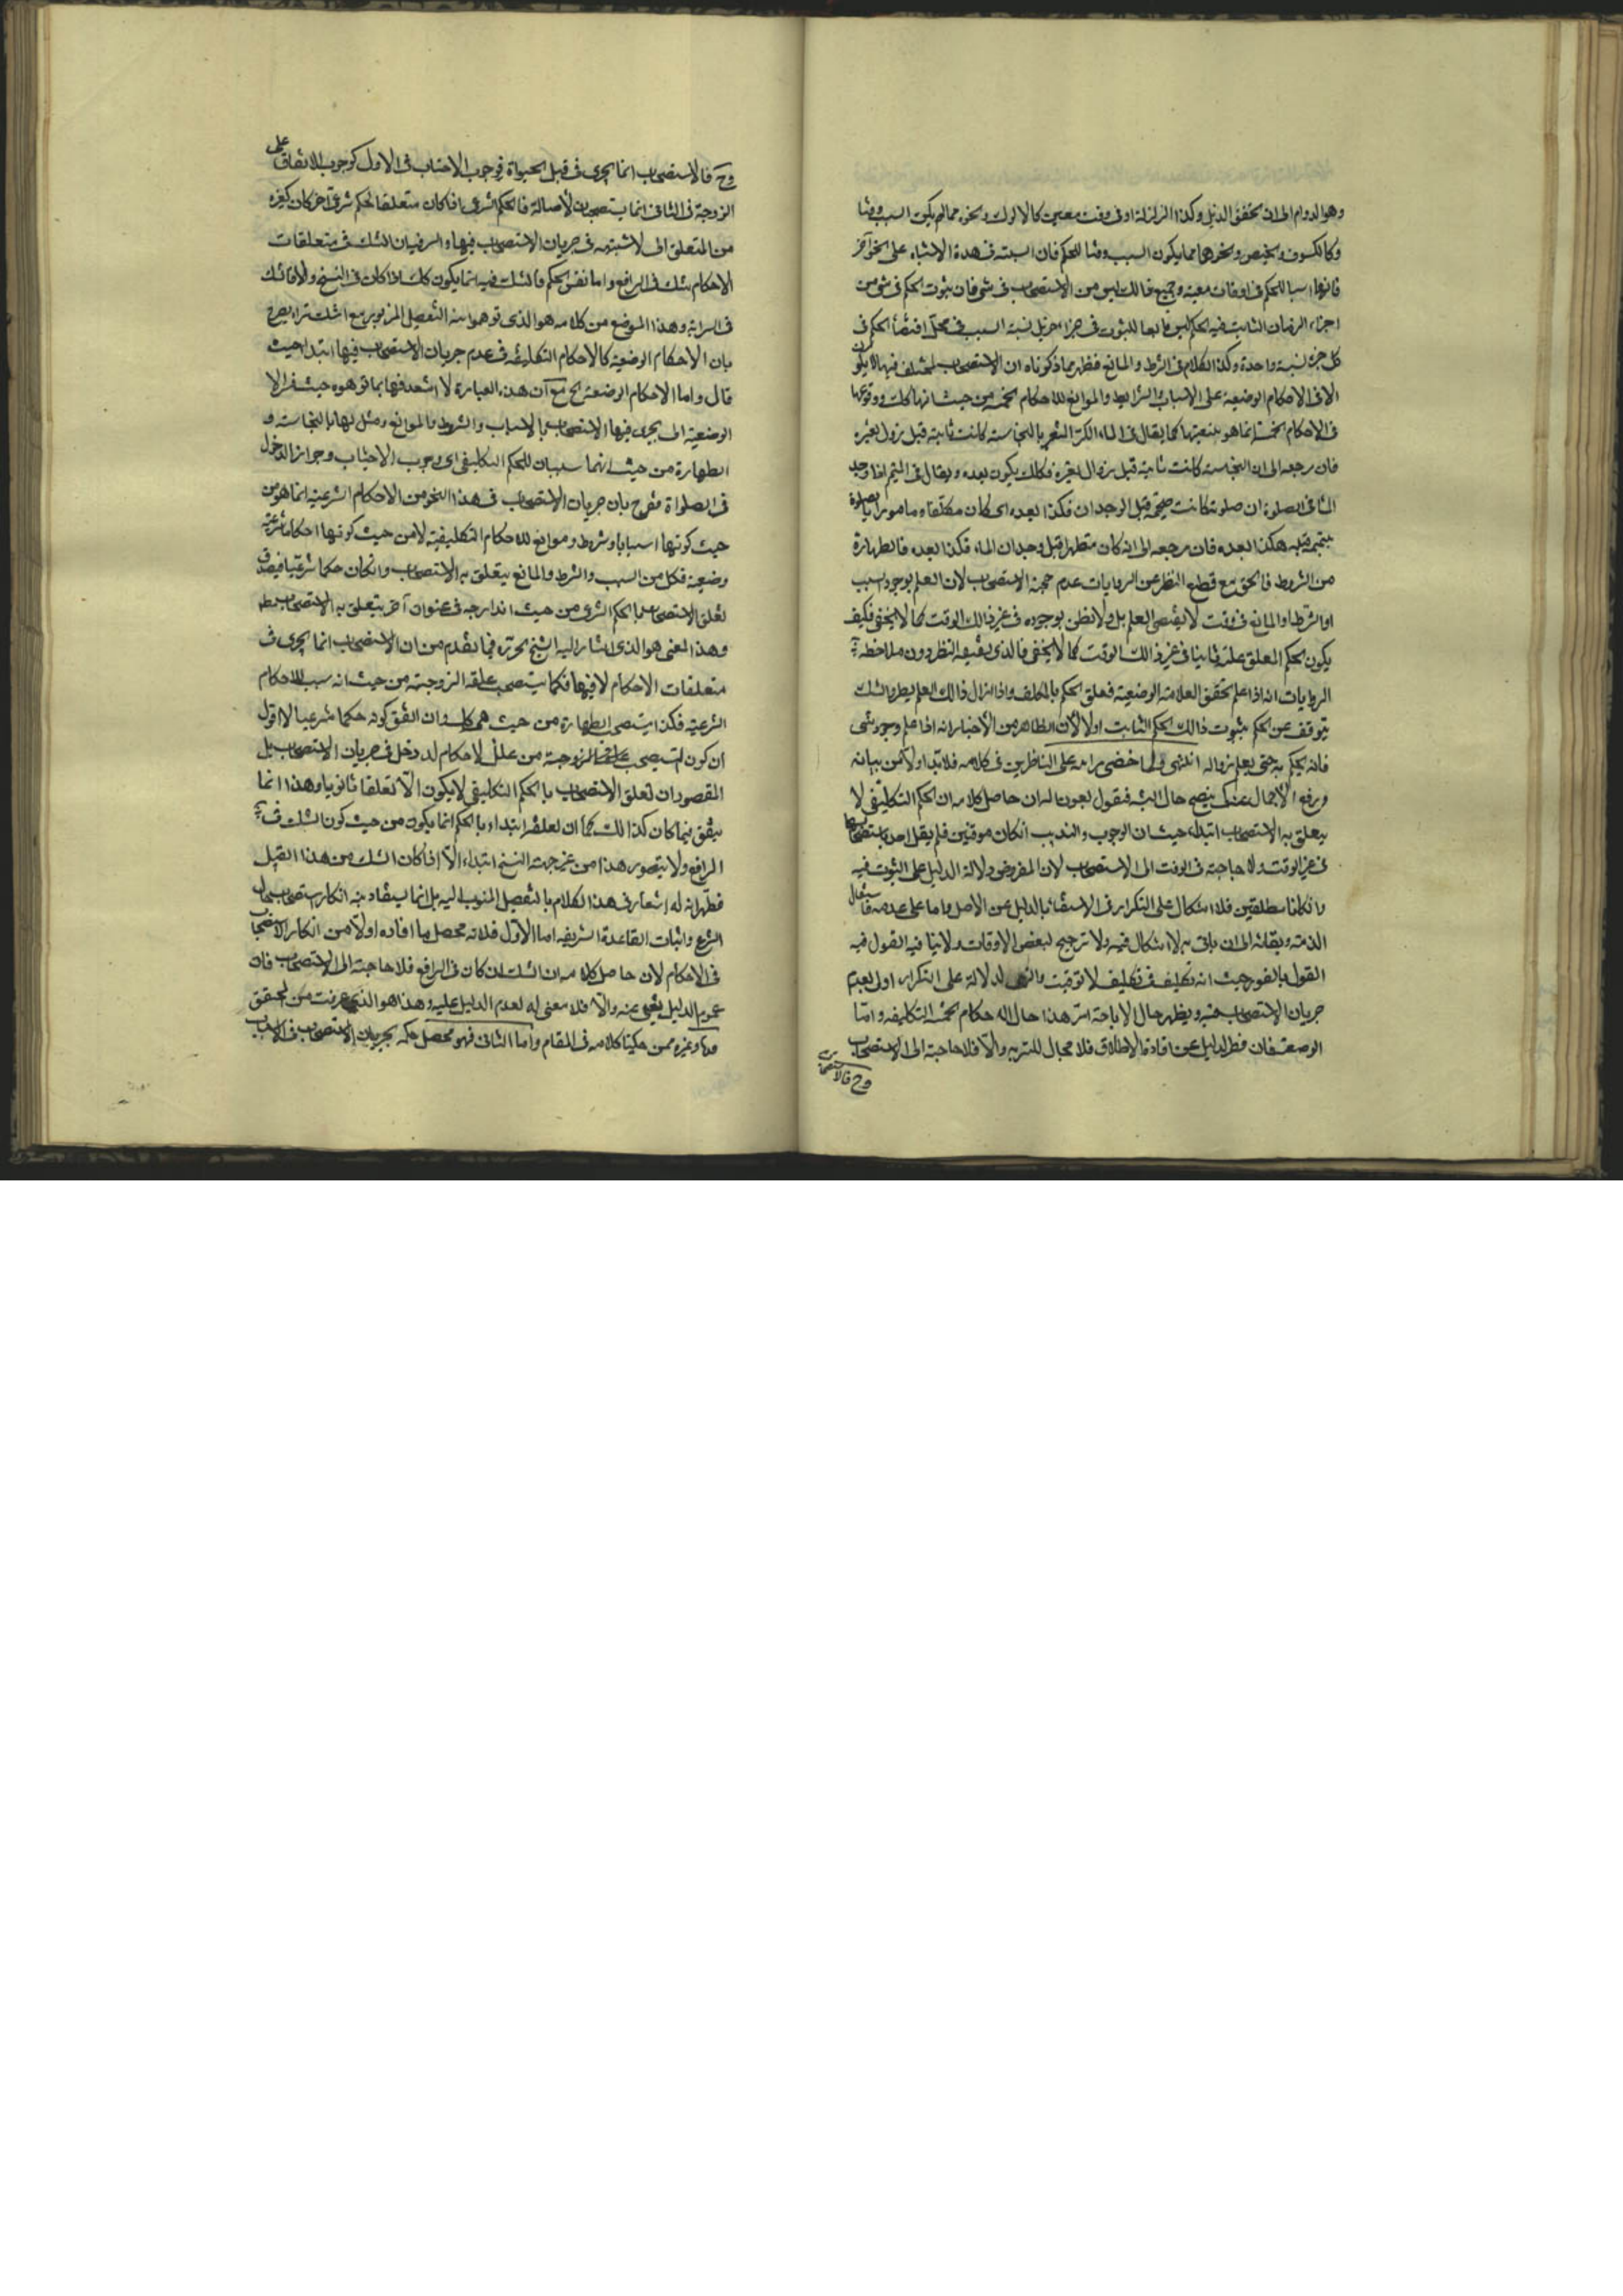 وهو الدوام الى ان يتحقق الدليل وكذا الزلزلة او في وقت معين كالدلوك ونحوه مما لم يكن السبب وقتا
وكالكسوف والحيض ونحوهما مما يكون السبب وقتا للحكم فان السببية في هذه الاشياء على نحو آخر
فانها اسباب للحكم في اوقات معينة وجميع ذالك ليس من الاستصحاب في شئ فان ثبوت الحكم في شئ من
اجزاء الزمان الثابت فيه الحكم ليس تابعا للثبوت في جزء آخر بل نسبة السبب في محل اقتضاء الحكم في
كل جزء نسبة واحدة وكذا الكلام في الشرط والمانع فظهر مما ذكرناه ان الاستصحاب المختلف فيه لا يكون
الا في الاحكام الوضعية اعني الاسباب والشرايط والموانع للاحكام الخمسة من حيث انها كك ووقوعها
في الاحكام الخمسة انما هو بتبعيتها كما يقال في الماء الكر المتغير بالنجاسة كانت ثابتة قبل زوال تغيره
فان مرجعه الى ان النجاسة كانت ثابتة قبل زوال تغيره فكك يكون بعده ويقال في المتيمم اذا وجد
الماء في الصلوة ان صلوته كانت صحيحة قبل الوجدان فكذا بعده اى كان مكلفا ومامورا بالصلوة
بتيممه قبله فكذا بعده فان مرجعه الى انه كان متطهرا قبل وجدان الماء فكذا بعده فالطهارة
من الشروط فالحق مع قطع النظر عن الروايات عدم حجية الاستصحاب لان العلم بوجود السبب
او الشرط او المانع في وقت لا يقتضى العلم بل ولا الظن بوجوده في غير ذالك الوقت كما لا يخفى فكيف
يكون الحكم المعلق عليه ثابتا في غير ذالك الوقت كما لا يخفى فالذى يقتضيه النظر دون ملاحظة
الروايات انه اذا علم تحقق العلامة الوضعية تعلق الحكم بالمكلف واذا زال ذالك العلم بطرو الشك
يتوقف عن الحكم بثبوت ذالك الحكم الثابت اولا الا ان الظاهر من الاخبار انه اذا علم وجود شئ
فانه يحكم به حتى يعلم زواله انتهى ولما خفى مرامه على الناظرين في كلامه فلا بد اولا من بيانه
ورفع الاجمال عنه كى يتضح حال النسبة فنقول بعون الله ان حاصل كلامه ان الحكم التكليفى لا
يتعلق به الاستصحاب ابتداء حيث ان الوجوب والندب ان كان موقتين فلم يقل احد باستصحابهما
في غير الوقت ولا حاجة في الوقت الى الاستصحاب لان المفروض دلالة الدليل على الثبوت فيه
وان كانا مطلقين فلا اشكال على التكرار في الاستغناء بالدليل عن الاصل واما على عدمه فاشتغال
الذمة وبقائه الى ان ياتى به لا اشكال فيه ولا ترجيح لبعض الاوقات ولا ينافيه القول فيه
القول بالفور حيث انه تكليف في تكليف لا توقيت والنهى له دلالة على التكرار اول بعدم
جريان الاستصحاب فيه ويظهر حال الاباحة ايضا هذا حال الاحكام الخمسة التكليفية واما
الوضعية فان فطر الدليل عن افادة الاطلاق فلا مجال للتسرية والا فلا حاجة الى الاستصحاب
وح فالاستصحاب
وح فالاستصحاب انما يجرى في قبل الحيوة فوجوب الاجتناب في الاول كوجوب الانفاق على
الزوجة في الثاني انما يستصحبان لاصالة فالحكم الشرعى اذا كان متعلقا لحكم شرعى آخر كان كغيره
من المتعلق الى لا شبهة في جريان الاستصحاب فيها والسر فيه ان الشك في متعلقات
الاحكام شك في الرافع واما نفس الحكم فالشك فيه انما يكون كك اذا كان في النسخ والا فالشك
في السراية وهذا الموضع من كلامه هو الذى توهموا منه التفصيل المزبور مع انك تراه يصرح
بان الاحكام الوضعية كالاحكام التكليفية في عدم جريان الاستصحاب فيها ابتداء حيث
قال واما الاحكام الوضعية الخ مع ان هذه العبارة لا اشعار فيها بما توهموه حيث فسر الا
الوضعية التى يجرى فيها الاستصحاب بالاسباب والشروط والموانع ومثل لها بالنجاسة و
الطهارة من حيث انهما سببان للحكم التكليفى اى وجوب الاجتناب وجواز الدخول
في الصلواة فصرح بان جريان الاستصحاب في هذا النحو من الاحكام الشرعية انما هو من
حيث كونها اسبابا وشروط وموانع للاحكام التكليفية لا من حيث كونها احكاما شرعية
وضعية فكل من السبب والشرط والمانع يتعلق به الاستصحاب وان كان حكما شرعيا فيصدق
تعلق الاستصحاب بالحكم الشرعى من حيث اندارجه في عنوان آخر يتعلق به الاستصحاب
وهذا المعنى هو الذى اشار اليه الشيخ فيما تقدم من ان الاستصحاب انما يجرى في
متعلقات الاحكام لا فيها فكما يستصحب علقة الزوجية من حيث انه سبب للاحكام
الشرعية فكذا يستصحب الطهارة من حيث هى كك وان اتفق كونه حكما شرعيا لا اقول
ان كون المستصحب علقة الزوجية من علل الاحكام له دخل في جريان الاستصحاب بل
المقصود ان تعلق الاستصحاب بالحكم التكليفى لا يكون الا تعلقا ثانويا وهذا انما
يتفق فيما كان كذالك كما ان تعلقه ابتداء بالحكم انما يكون من حيث كون الشك في
الرافع ولا يتصور هذا من غير جهة النسخ ابتداء الا اذا كان الشك من هذا القبيل
فظهر انه لا اشعار في هذا الكلام بالتفصيل المنسوب اليه بل انما يستفاد منه انكار استصحاب حال
الشرع واثبات القاعدة الشريفة اما الاول فلانه محصل ما افاده اولا من انكار الاستصحاب
في الاحكام لان حاصل كلامه ان الشك ان كان في الرافع فلا حاجة الى الاستصحاب فان
عموم الدليل يغنى عنه والا فلا معنى له لعدم الدليل عليه وهذا هو الذى عرفت من المحقق
وغيره ممن حكينا كلامه في المقام واما الثاني فهو محصل حكمه بجريان الاستصحاب في الاسباب